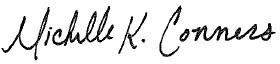 Michelle K. Conners